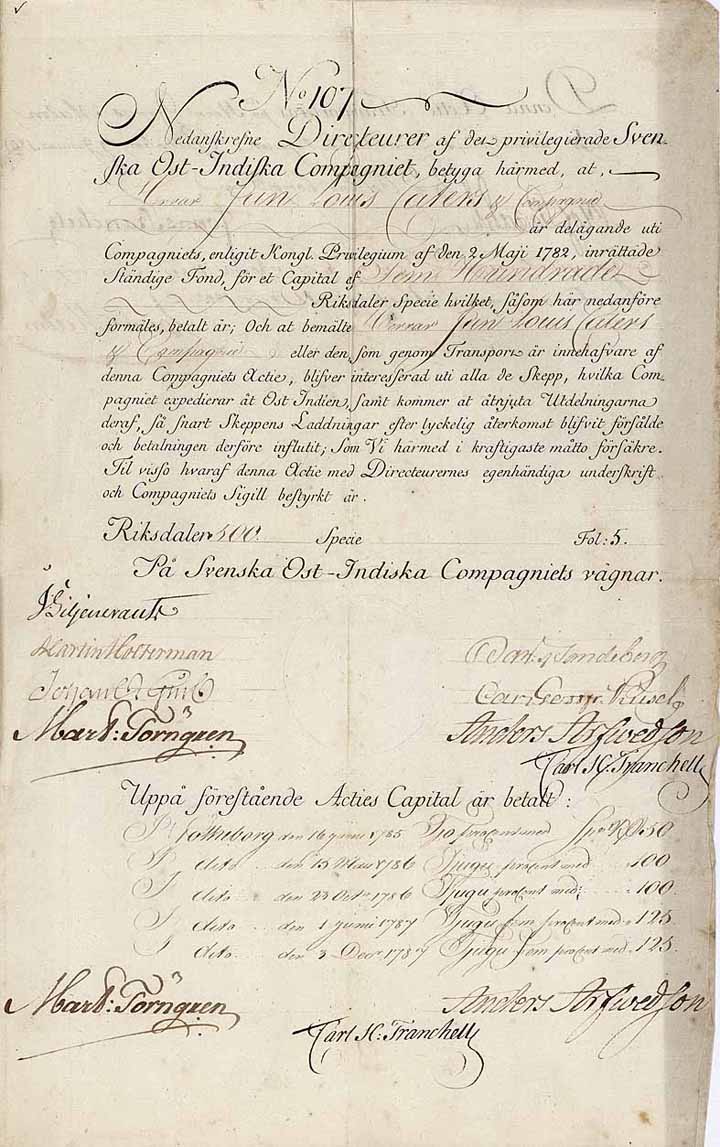 No 107
Nedanskrefne Directeurer af det privilegierade Sven-
ska Ost-Indiska Compagniet, betyga härmed, at,
Herrar Jean Louis Caters & Compagnie
är delägande uti
Compagniets, enligit Kongl. Privilegium af den 2 Maji 1782, inrättade
Ständige Fond, för et Capital af Fem Hundrade
Riksdaler Specie hvilket, såsom här nedanföre
formäles, betalt är; Och at bemälte Herrar Jean Louis Caters
& Compagnie eller den, som genom Transport är innehafvare af
denna Compagniets Actie, blifver interesserad uti alla de Skepp, hvilka Com-
pagniet expedierar åt Ost Indien, samt kommer at åtnjuta Utdelningarna
deraf, så snart Skeppens Laddningar efter lyckelig återkomst blifvit försålde
och betalningen derföre influtit; Som Vi härmed i kraftigaste måtto försäkre.
Til visso hvaraf denna Actie med Directeurernes egenhändiga underskrift
och Compagniets Sigill bestyrkt är.
Riksdaler 500 Specie Fol: 5.
På Svenska Ost-Indiska Compagniets vägnar.
Martin Holterman
Mart: Törngren Anders Arfwedson
Carl H: Tranchell
Uppå förestående Acties Capital är betalt:
Götheborg den 16 Junii 1785 Tio procent med 50
dito den 15 1786 Tjugu procent med 100
dito den 23 Octr 1786 Tjugu procent med: 100
dito den 1 Junii 1787 Tjugu fem procent med 125
dito den 3 Decr 1787 Tjugu fem procent med 125.
Mart: Törngren Anders Arfwedson
Carl H: Tranchell